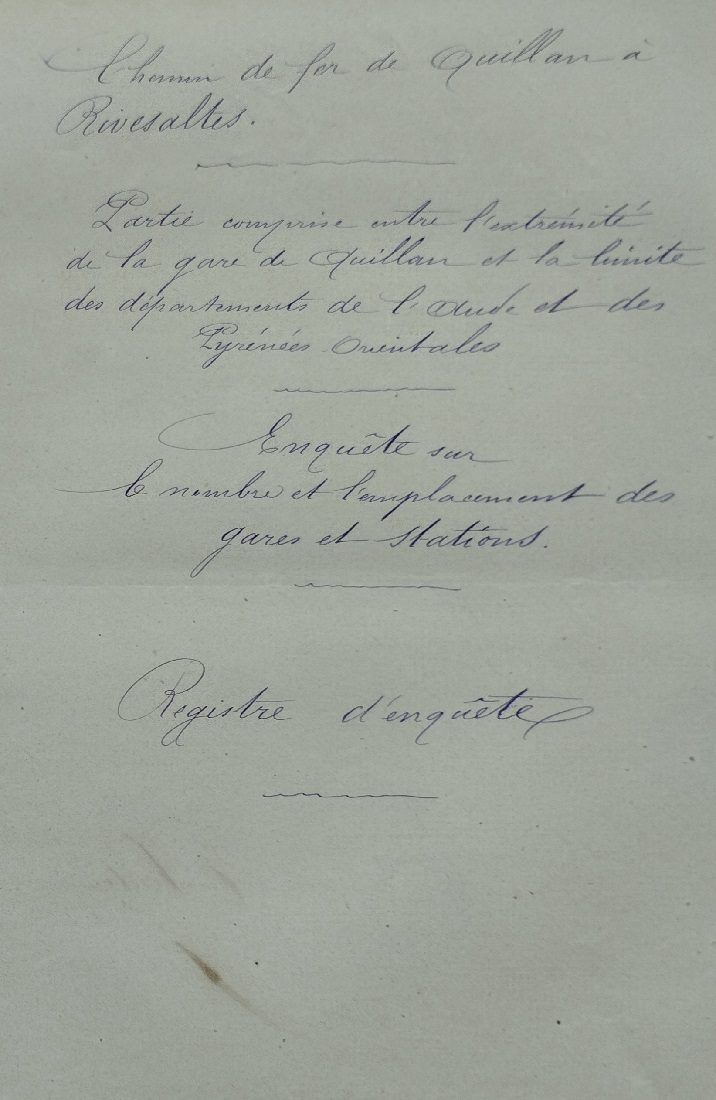 Chemin de fer de Quillan à
Rivesaltes.
Partie comprise entre l'extrémité
de la gare de Quillan et la limite
des départements de l'Aude et des
Pyrénées Orientales
Enquête sur
le nombre et l'emplacement des
gares et stations.
Registre d'enquête